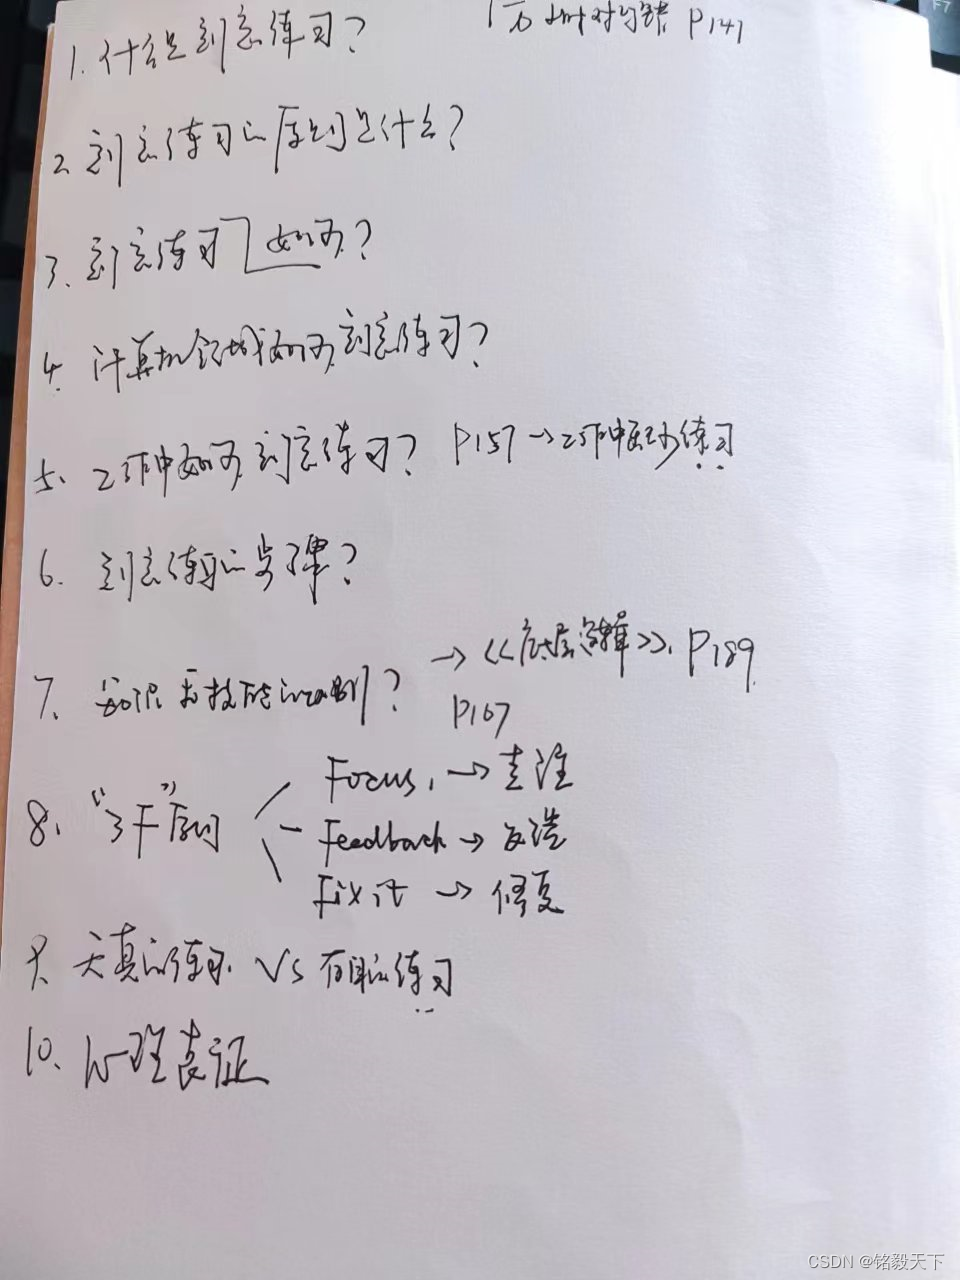 1. 什么是刻意练习? 1万小时对与错 P141
2. 刻意练习的原则是什么?
3. 刻意练习如何?
4. 计算机领域如何刻意练习?
5. 工作中如何刻意练习? P157 → 工作中练习
6. 刻意练习的步骤?
7. 知识与技能的区别? → 《底层逻辑》. P189
P167
8. "3F"原则
Focus, → 专注
Feedback → 反馈
Fix it → 修复
9. 天真的练习 VS 有目的练习
10. 心理表征
F7
CSDN @铭毅天下